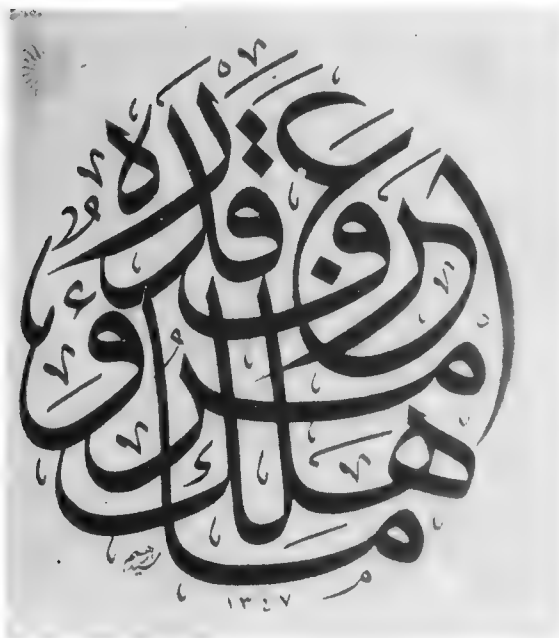 ما هلك امرؤ عرف قدره
١٣٤٧